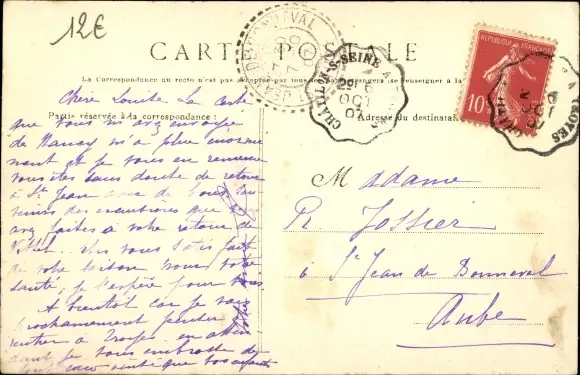 12€
CARTE POSTALE
La Correspondance au recto n'est pas acceptée par tous les pays étrangers (se renseigner à la
Partie réservée à la correspondance :
Adresse du destinataire
CHATILLON-S-SEINE A
29 6
OCT
07
RÉPUBLIQUE FRANÇAISE
10
TROYES
Chère Louise La carte
que vous m'avez envoyée
de Nancy m'a plue énormé
ment et je vous en remercie
vous êtes sans doute de retour
à St Jean avec de bons sou
venirs des excursions que
avez faites à votre retour de
Vittel.
de votre saison
santé, je l'espère pour
A bientôt car je vais
prochainement
rentrer à Troyes en atten
dant je vous embrasse de
tout cœur que vos enfants
Madame
R. Jossier
à St Jean de Bonneval
Aube